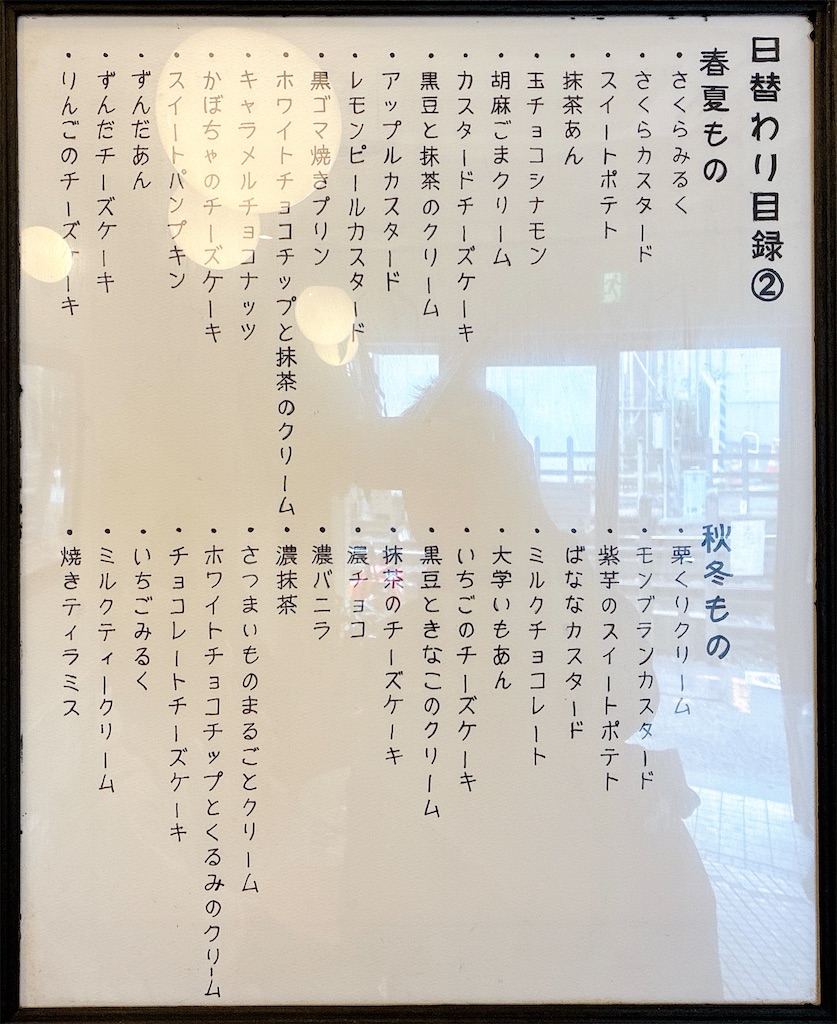 日替わり目録②
春夏もの
・さくらみるく
・さくらカスタード
・スイートポテト
・抹茶あん
・玉チョコシナモン
・胡麻ごまクリーム
・カスタードチーズケーキ
・黒豆と抹茶のクリーム
・アップルカスタード
・レモンピールカスタード
・黒ゴマ焼きプリン
・ホワイトチョコチップと抹茶のクリーム
・キャラメルチョコナッツ
・かぼちゃのチーズケーキ
・スイートパンプキン
・ずんだあん
・ずんだチーズケーキ
・りんごのチーズケーキ
秋冬もの
・栗くりクリーム
・モンブランカスタード
・紫芋のスイートポテト
・ばななカスタード
・ミルクチョコレート
・大学いもあん
・いちごのチーズケーキ
・黒豆ときなこのクリーム
・抹茶のチーズケーキ
・濃チョコ
・濃バニラ
・濃抹茶
・さつまいものまるごとクリーム
・ホワイトチョコチップとくるみのクリーム
・チョコレートチーズケーキ
・いちごみるく
・ミルクティークリーム
・焼きティラミス